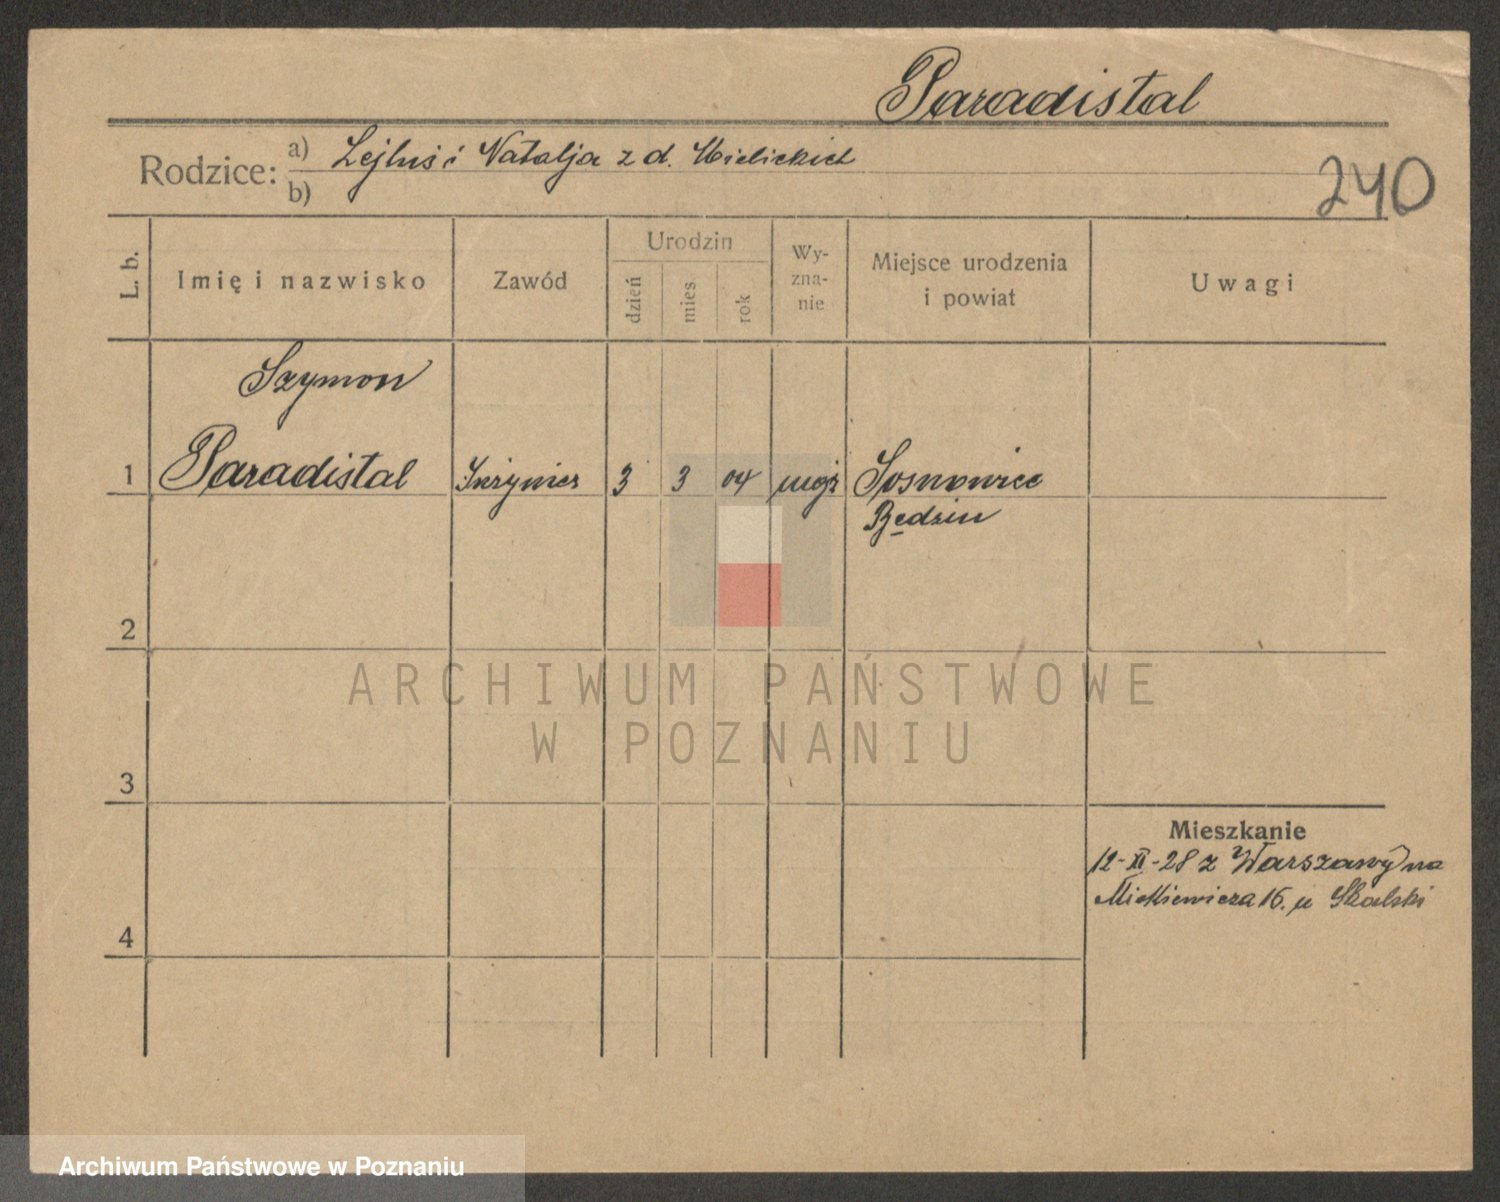 Paradistal
Rodzice: a) Lejbuś i Natalja z d. Mielickich
b)
240
L. b.
Imię i nazwisko
Zawód
Urodzin
dzień
mies
rok
Wy-
zna-
nie
Miejsce urodzenia
i powiat
Uwagi
Szymon
1 Paradistal Inżynier 3 3 04 mojż Sosnowice
Będzin
2
3
4
ARCHIWUM PAŃSTWOWE
W POZNANIU
Mieszkanie
12-XI-28 z Warszawy na
Mickiewicza 16. u Skalski
Archiwum Państwowe w Poznaniu